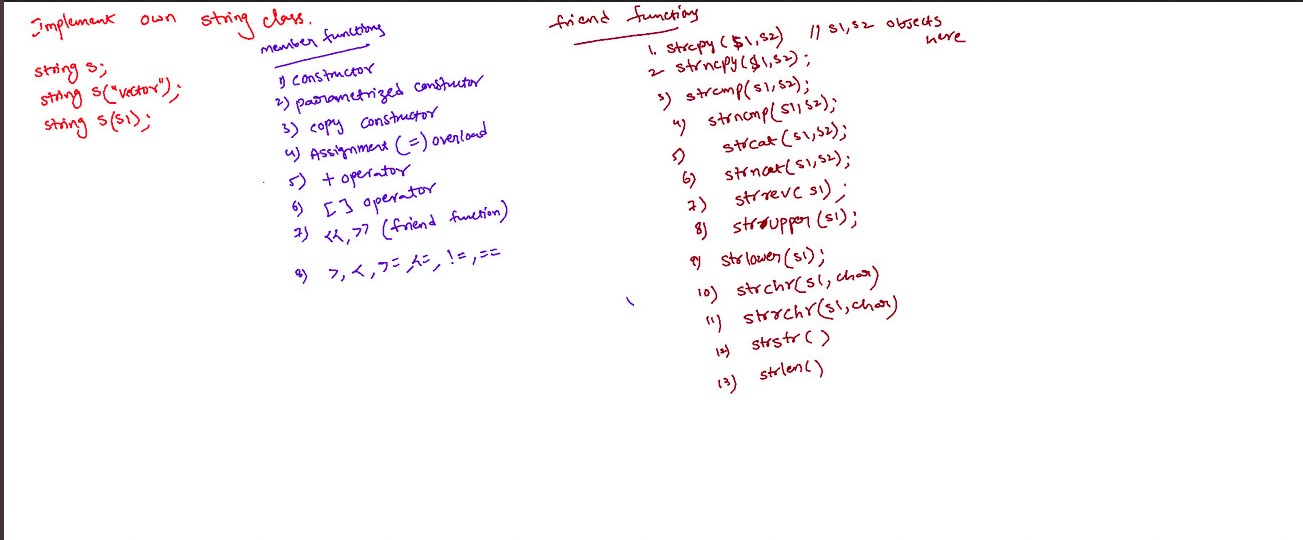 Implement own string class.
string s;
string s("vector");
string s(s1);
member functions
1) constructor
2) parametrized constructor
3) copy constructor
4) Assignment (=) overload
5) + operator
6) [] operator
7) <<, >> (friend function)
8) >, <, >=, <=, !=, ==
friend functions
1. strcpy(s1,s2) // s1,s2 objects
here
2 strncpy(s1,s2);
3) strcmp(s1,s2);
4) strncmp(s1,s2);
5) strcat(s1,s2);
6) strncat(s1,s2);
7) strrev(s1);
8) strupper(s1);
9) strlower(s1);
10) strchr(s1,char)
11) strrchr(s1,char)
12) strstr()
13) strlen()